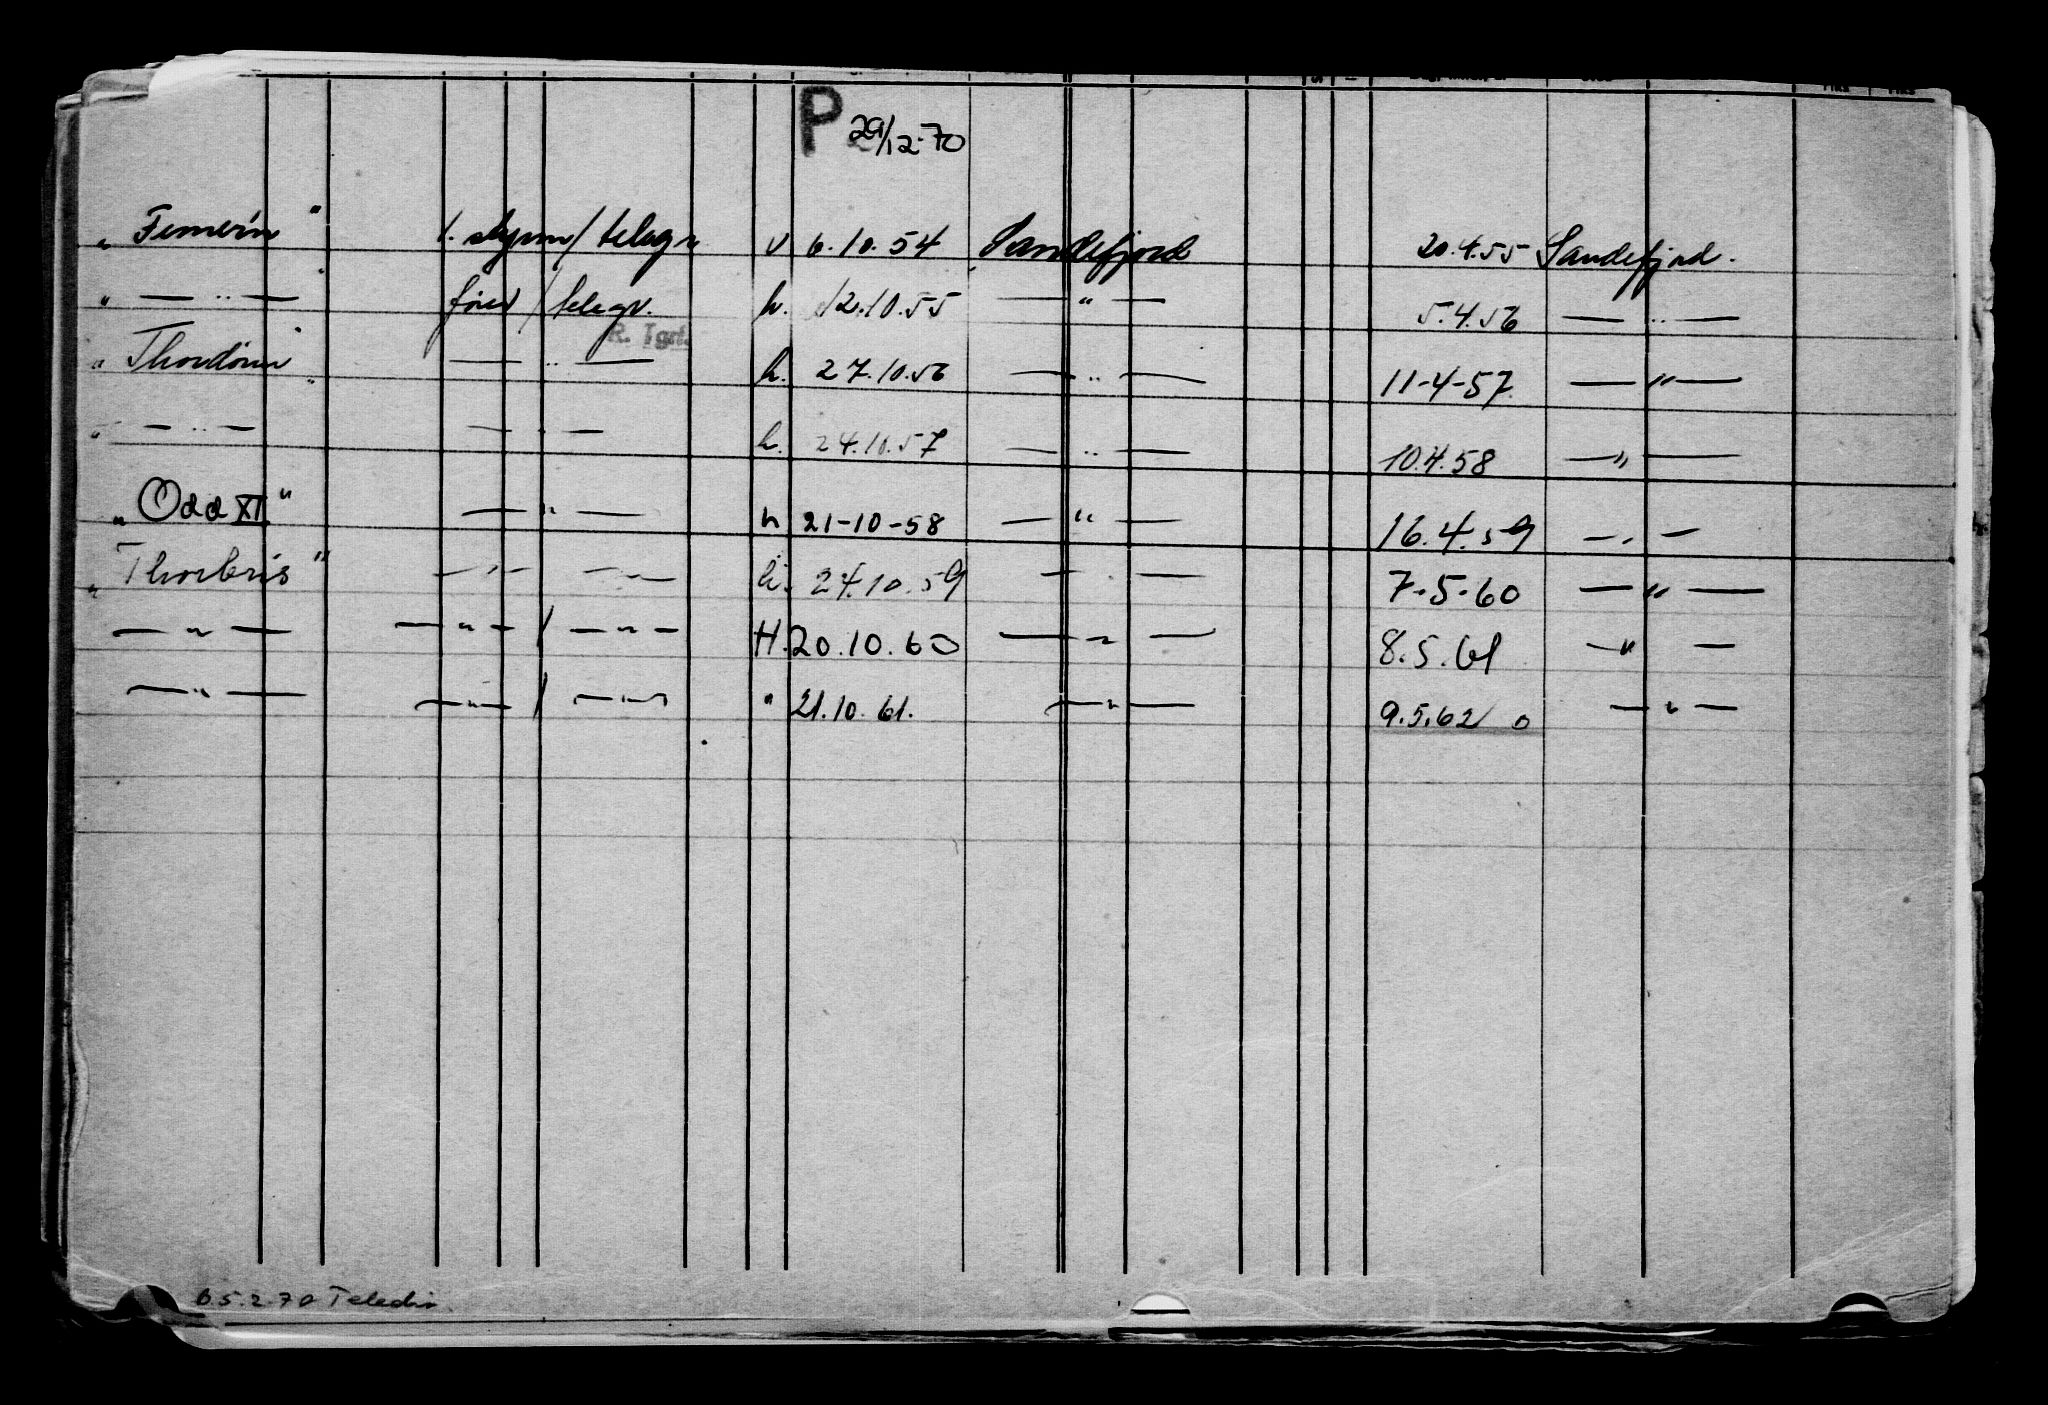 P 29/12-70
„Femern" 1. styrm / telegr v 6.10.54 Sandefjord 20.4.55 Sandefjord.
" — " — fører / telegr. h. 12.10.55 — " — 5.4.56 — " —
R. Tgrf.
„Thordønn" — " — h. 27.10.56 — " — 11-4-57 — " —
" — " — — " — h. 24.10.57 — " — 10.4.58 — " —
„Odd XI" — " — h 21-10-58 — " — 16.4.59 — " —
„Thorbris" — " — — " — h. 24.10.59 — " — 7.5.60 — " —
— " — — " — / — " — H. 20.10.60 — " — 8.5.61 — " —
— " — — " — / — " — " 21.10.61. — " — 9.5.62 o — " —
5.2.70